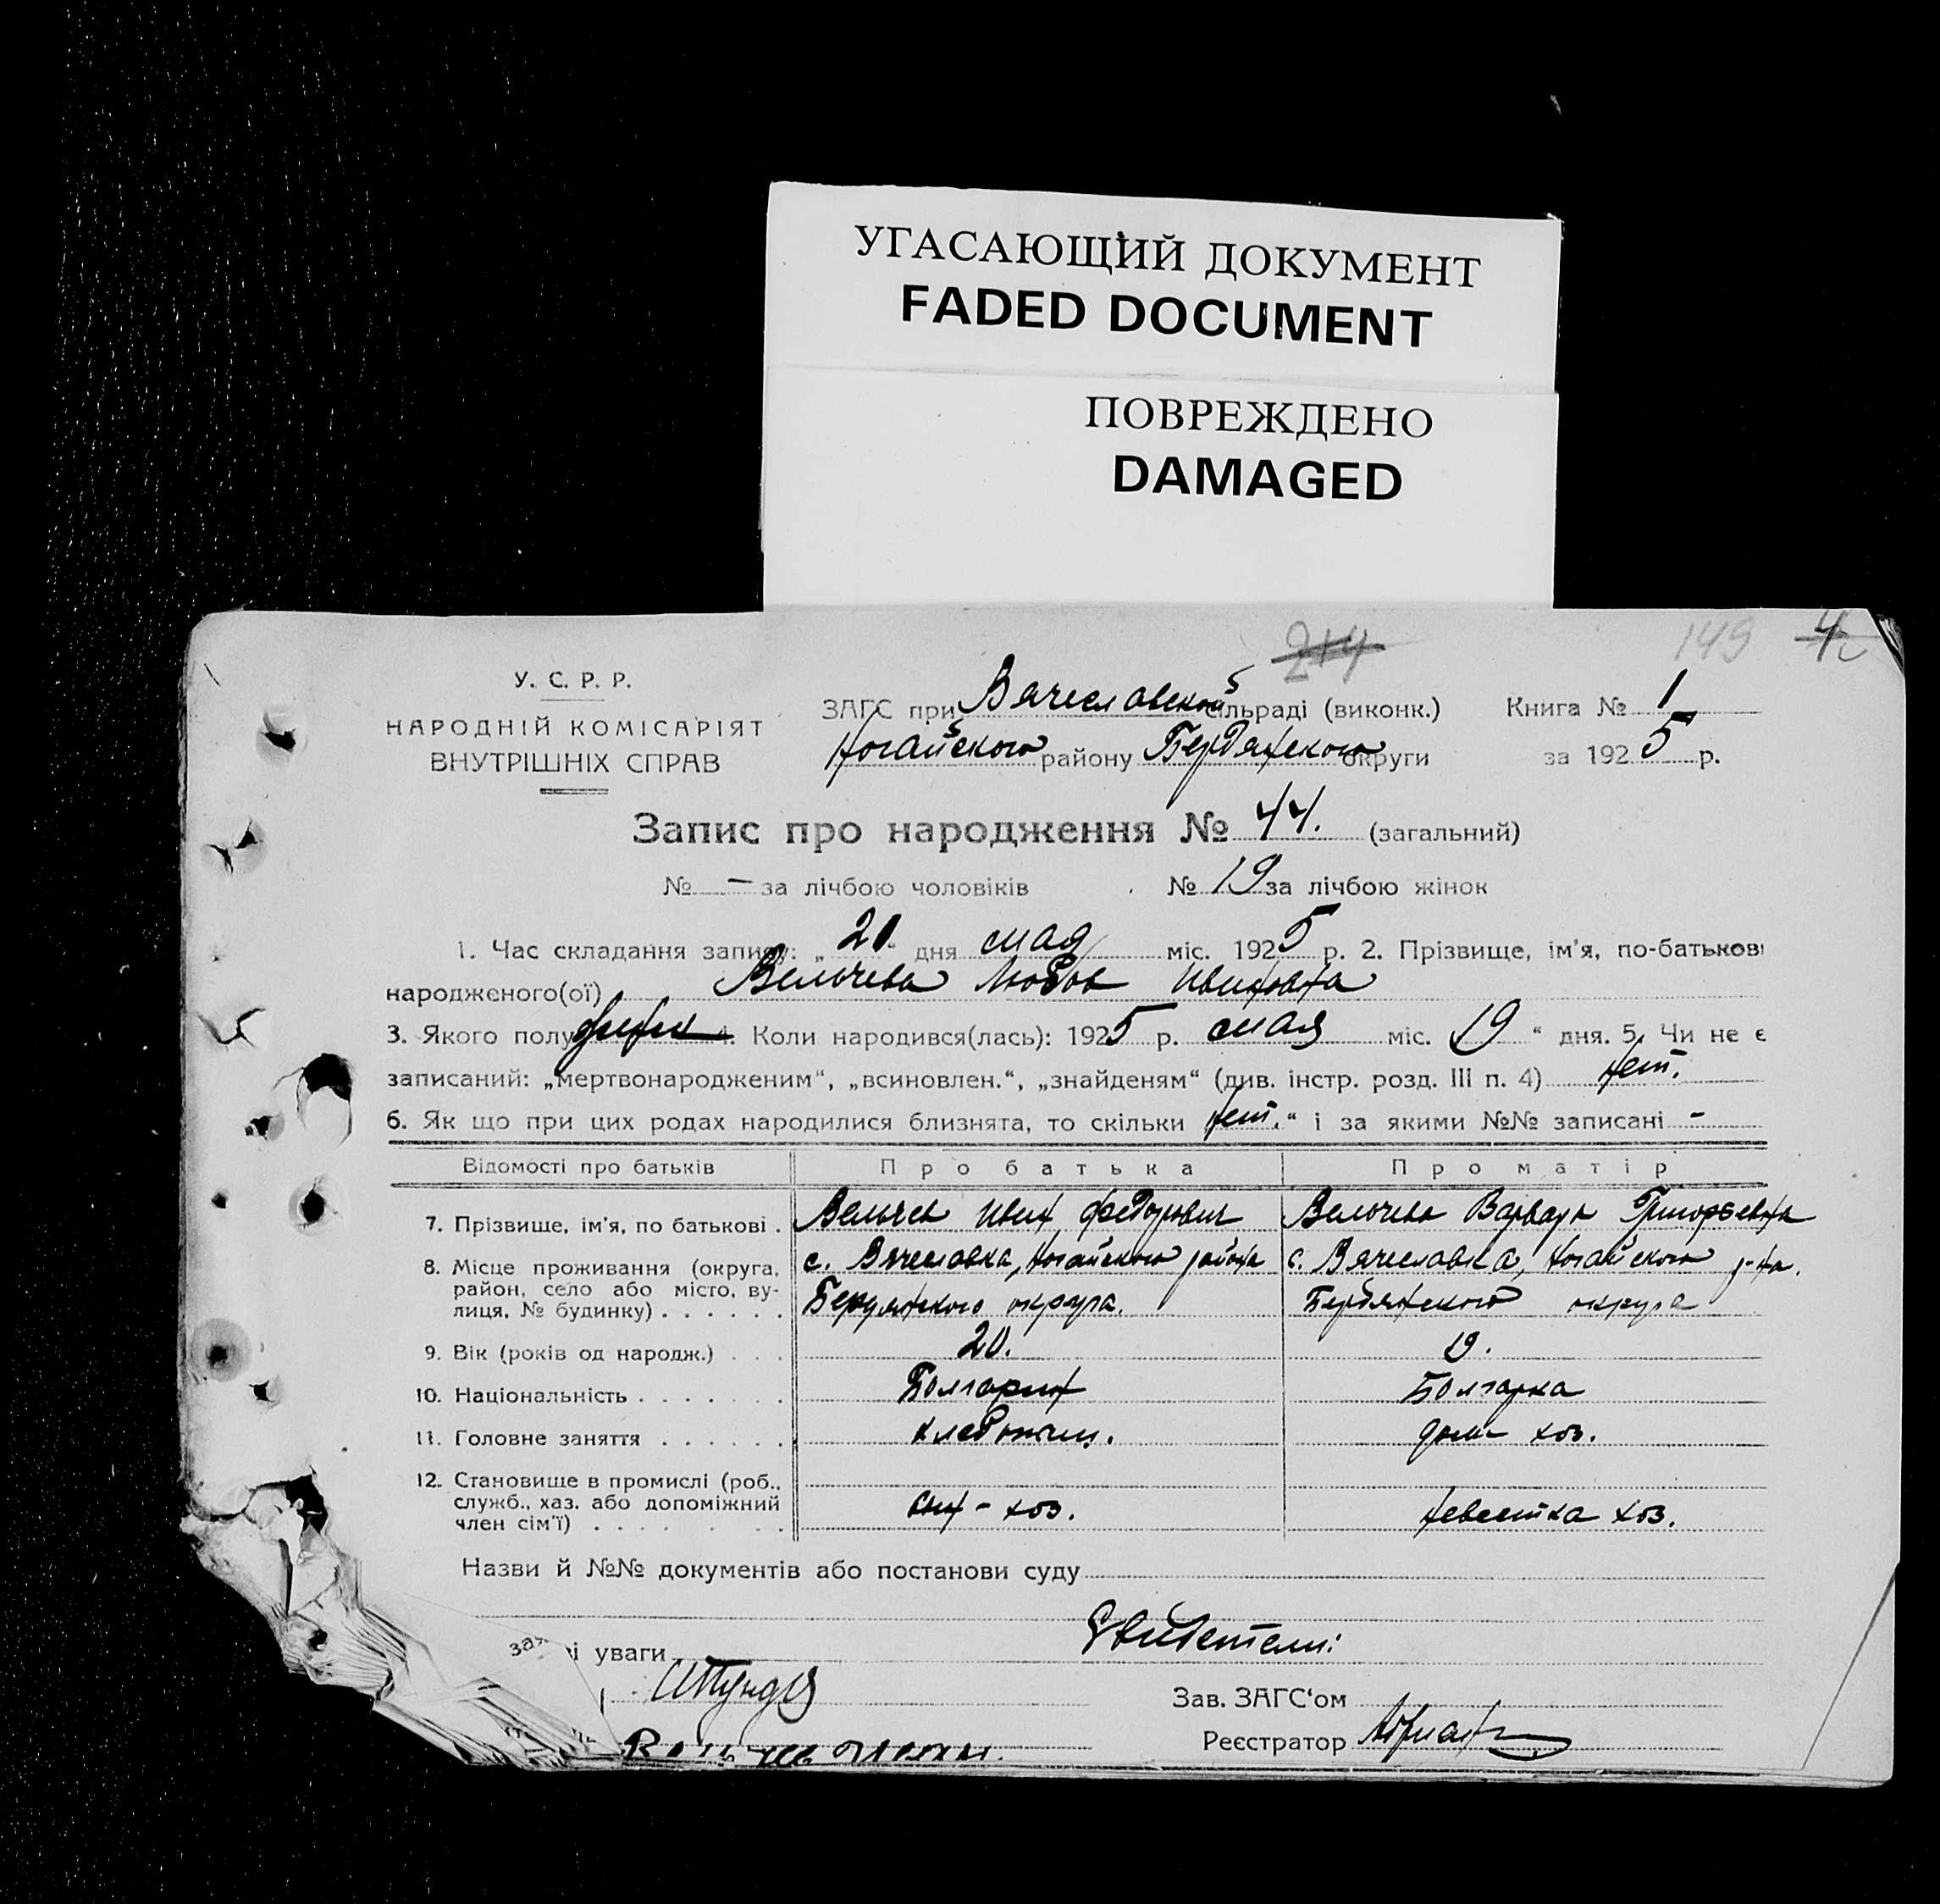 УГАСАЮЩИЙ ДОКУМЕНТ
FADED DOCUMENT
ПОВРЕЖДЕНО
DAMAGED
214
149 4
У. С. Р. Р.
НАРОДНІЙ КОМІСАРІЯТ
ВНУТРІШНІХ СПРАВ
ЗАГС при Вячеславской сільраді (виконк.) Книга № 1
Ногайского району Бердянского округи за 1925 р.
Запис про народження № 44. (загальний)
№ — за лічбою чоловіків № 19 за лічбою жінок
1. Час складання запису: „20“ дня мая міс. 1925 р. 2. Прізвище, ім'я, по-батькові
народженого(ої) Вельчева Любов Ивановна
3. Якого полу 4. Коли народився(лась): 1925 р. мая міс. 19 “ дня. 5. Чи не є
записаний: „мертвонародженим“, „всиновлен.“, „знайденям“ (див. інстр. розд. III п. 4) нет.
6. Як що при цих родах народилися близнята, то скільки нет.“ і за якими №№ записані -
Відомості про батьків Про батька Про матір
7. Прізвище, ім'я, по батькові . Вельчев Иван Федорович Вельчева Варвара Григорьевна
8. Місце проживання (округа, район, село або місто, вулиця, № будинку) . . . . . . с. Вячеславка, Ногайского района Бердянского округа. с. Вячеславка, Ногайского р-на. Бердянского округа
9. Вік (років од народж.) . . . 20. 19.
10. Національність . . . . . . . Болгарин Болгарка
11. Головне заняття . . . . . . хлебопаш. дом- хоз.
12. Становище в промислі (роб., служб., хаз. або допоміжний член сім'ї) . . . . . . . . . сын - хоз. невестка хоз.
Назви й №№ документів або постанови суду
уваги Свидетели:
Зав. ЗАГС‘ом
Реєстратор